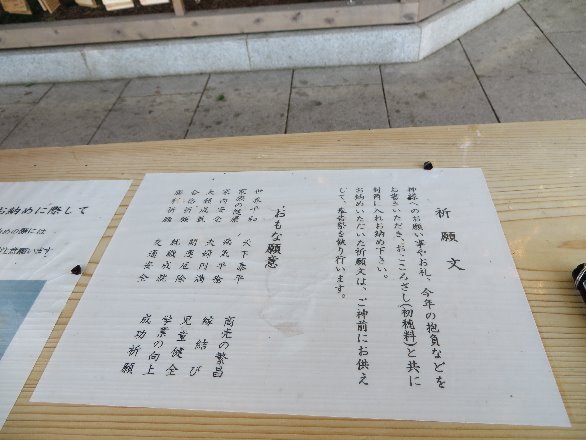 祈願文
神様へのお願い事やお礼、今年の抱負などを
お書きいただき、お・こころざし(初穂料)と共に
封筒に入れお納め下さい。
お納めいただいた祈願文は、ご神前にお供え
して、奉告祭を執り行います。
おもな願意
世界平和 天下泰平 商売の繁昌
家族の健康 病気平癒 縁結び
家内安全 夫婦円満 児童健全
大願成就 開運厄除 学業の向上
合格祈願 就職成就 成功祈願
勝利祈願 交通安全
お納めに際して